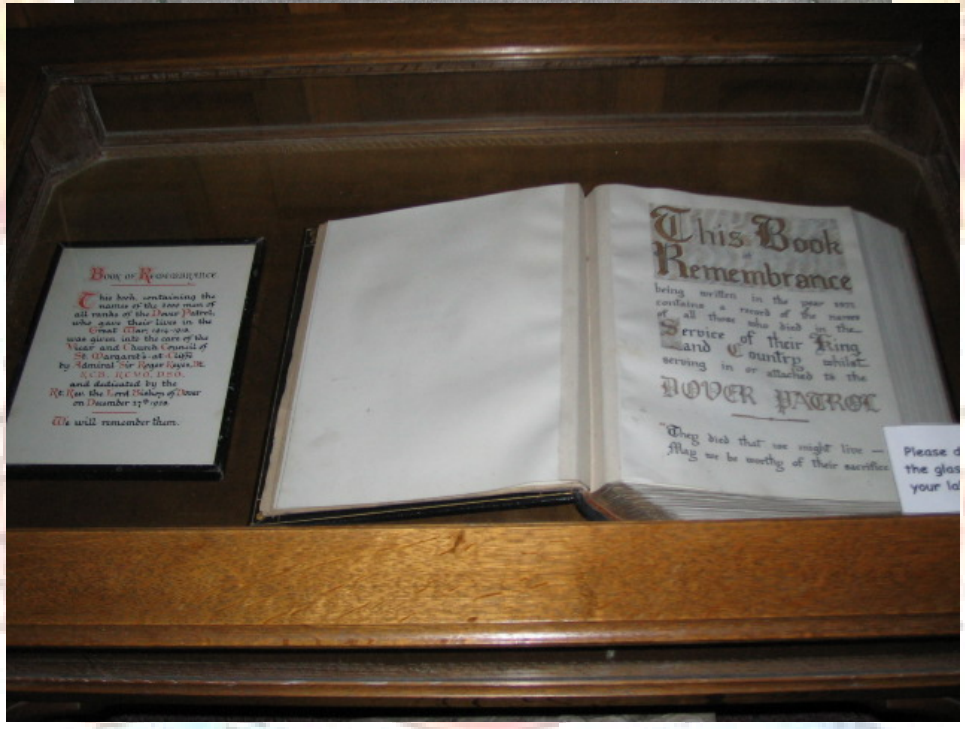 BOOK OF REMEMBRANCE
This book, containing the
names of the 2000 men of
all ranks of the Dover Patrol,
who gave their lives in the
Great War, 1914-1918.
was given into the care of the
Vicar and Church Council of
St. Margaret's-at-Cliffe
by Admiral Sir Roger Keyes, Bt.
K.C.B., K.C.V.O., D.S.O.
and dedicated by the
Rt. Rev. the Lord Bishop of Dover
on December 27th
We will remember them.
This Book
of
Remembrance
being written in the year
contains a record of the names
of all those who died in the
Service of their King
and Country whilst
serving in or attached to the
DOVER PATROL
"They died that we might live —
May we be worthy of their sacrifice
Please d
the glas
your la